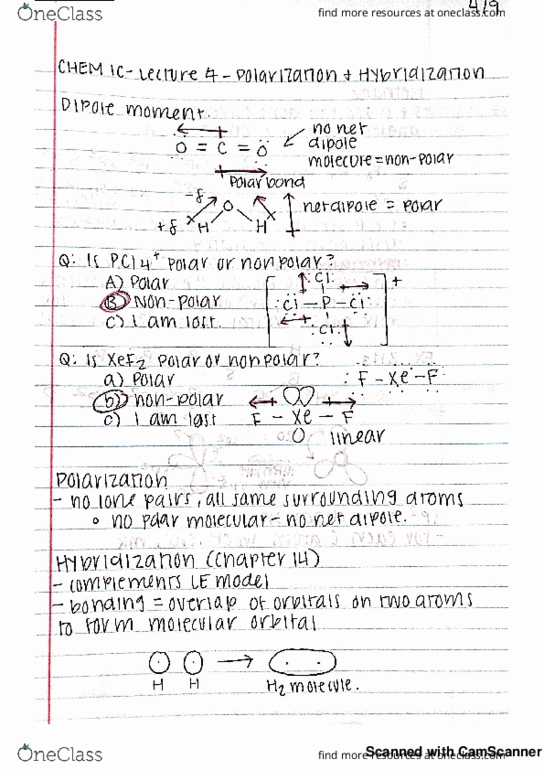 OneClass
find more resources at oneclass.com
4/9
CHEM 1C - Lecture 4 - Polarization + Hybridization
Dipole moment
O = C = O
no net
dipole
molecule = non-polar
Polar bond
-δ
O
+δ
H
H
net dipole = polar
Q: Is PCl4+ polar or nonpolar?
A) Polar
B) Non-polar
C) I am lost.
:Cl:
:Cl - P - Cl:
:Cl:
+
Q: Is XeF2 polar or nonpolar?
a) Polar
b) non-polar
c) I am lost
: F - Xe - F :
F - Xe - F
linear
Polarization
- no lone pairs, all same surrounding atoms
o no polar molecular - no net dipole.
Hybridization (Chapter 14)
- complements LE model
- bonding = overlap of orbitals on two atoms
to form molecular orbital
H H
H2 molecule.
Scanned with CamScanner
OneClass
find more resources at oneclass.com